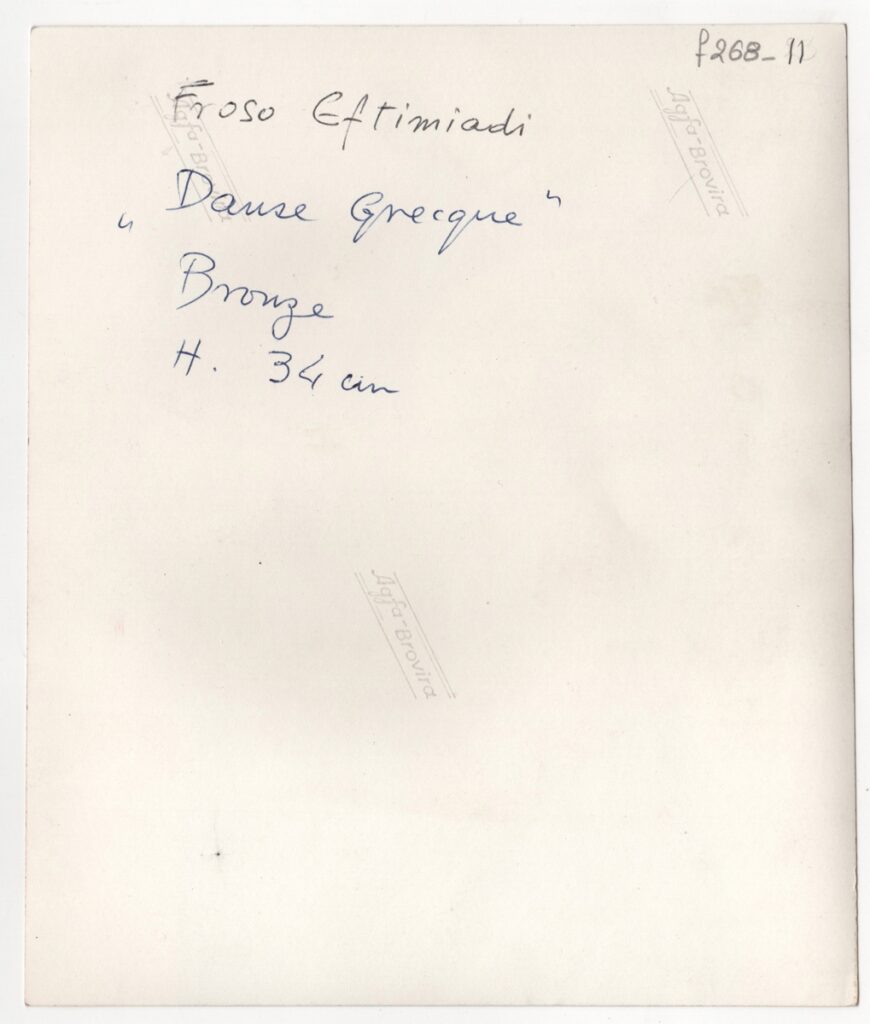 f268-11
Froso Eftimiadi
„Danse Grecque“
Bronze
H. 34 cm
Agfa-Brovira
Agfa-Brovira
Agfa-Brovira